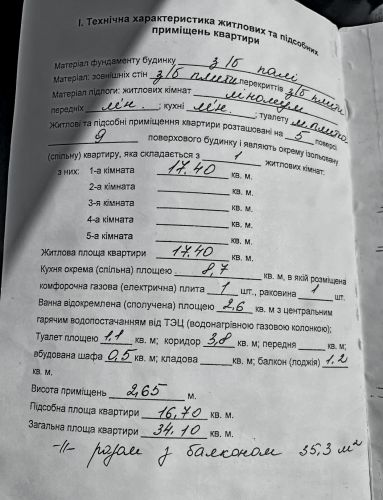 І. Технічна характеристика житлових та підсобних
приміщень квартири
Матеріал фундаменту будинку з/б палі
Матеріал: зовнішніх стін з/б плити перекриттів з/б плити
Матеріал підлоги: житлових кімнат лінолеум
передніх лін. ; кухні лін. ; туалету
Житлові та підсобні приміщення квартири розташовані на 5 поверсі
9 поверхового будинку і являють окрему ізольовану
(спільну) квартиру, яка складається з 1 житлових кімнат:
з них: 1-а кімната 17.40 кв. м.
2-а кімната кв. м.
3-я кімната кв. м.
4-а кімната кв. м.
5-а кімната кв. м.
Житлова площа квартири 17.40 кв. м.
Кухня окрема (спільна) площею 8,7 кв. м, в якій розміщена
комфорочна газова (електрична) плита 1 шт., раковина 1 шт.
Ванна відокремлена (сполучена) площею 2,6 кв. м з центральним
гарячим водопостачанням від ТЭЦ (водонагрівною газовою колонкою);
Туалет площею 1,1 кв. м; коридор 3,8 кв. м; передня кв. м;
вбудована шафа 0,5 кв. м; кладова кв. м; балкон (лоджія) 1,2
кв. м.
Висота приміщень 2,65 м.
Підсобна площа квартири 16,70 кв. м.
Загальна площа квартири 34,10 кв. м.
-//- разом з балконом 35,3 м²